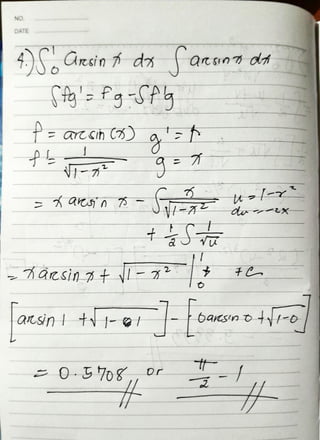 NO.
DATE
4.) ∫₀¹ arcsin x dx ∫ arcsin x dx
∫fg' = fg - ∫f'g
f = arcsin (x) g' = 1
f' = 1/√(1-x²) g = x
= x arcsin x - ∫ x/√(1-x²) u = 1-x²
du = -2x
+ 1/2 ∫ 1/√u
= x arcsin x + √(1-x²) |₀¹ + C
[arcsin 1 + √(1-1)] - [0arcsin 0 + √(1-0)]
= 0.5708 or π/2 - 1